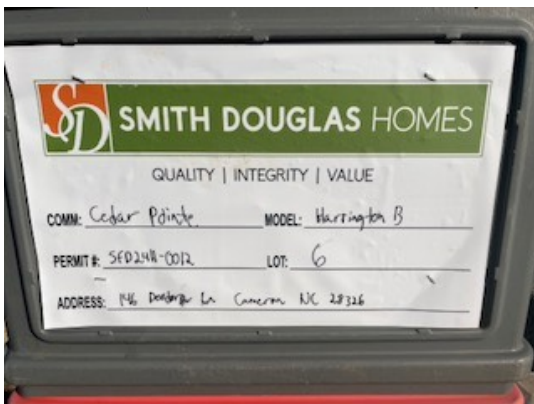 SD SMITH DOUGLAS HOMES
QUALITY | INTEGRITY | VALUE
COMM: Cedar Pointe MODEL: Harrington B
PERMIT #: LOT: 6
ADDRESS: 146 Ln Cameron NC 28326